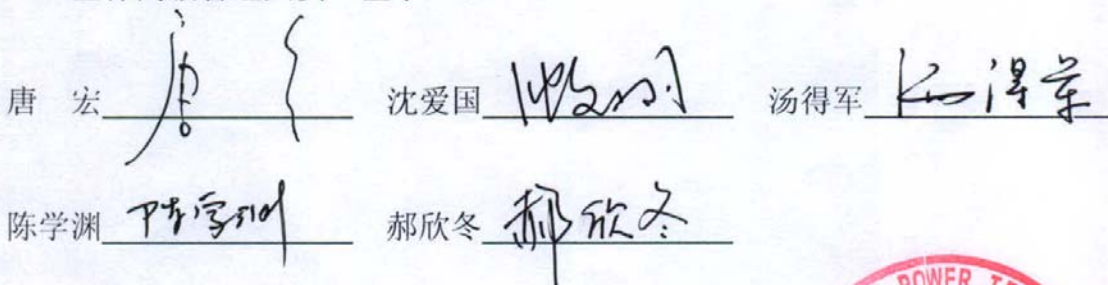 唐 宏 唐宏 沈爱国 沈爱国 汤得军 汤得军
陈学渊 陈学渊 郝欣冬 郝欣冬
POWER